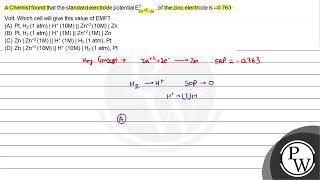 A Chemist found that the standard electrode potential E° Zn⁺²/Zn, of the zinc electrode is –0.763
Volt. Which cell will give this value of EMF?
(A) Pt, H₂ (1 atm) | H⁺ (10M) || Zn⁺² (10M) | Zn
(B) Pt, H₂ (1 atm) | H⁺ (1M) || Zn⁺² (1M) | Zn
(C) Zn | Zn⁺² (1M) || H⁺ (1M) | H₂ (1 atm), Pt
(D) Zn | Zn⁺² (10M) || H⁺ (10M) | H₂ (1 atm), Pt
Key Concept → Zn⁺² + 2e⁻ → Zn SRP = -0.763
H₂ → H⁺ SOP → 0
H⁺ → (1)M
(A)
PW